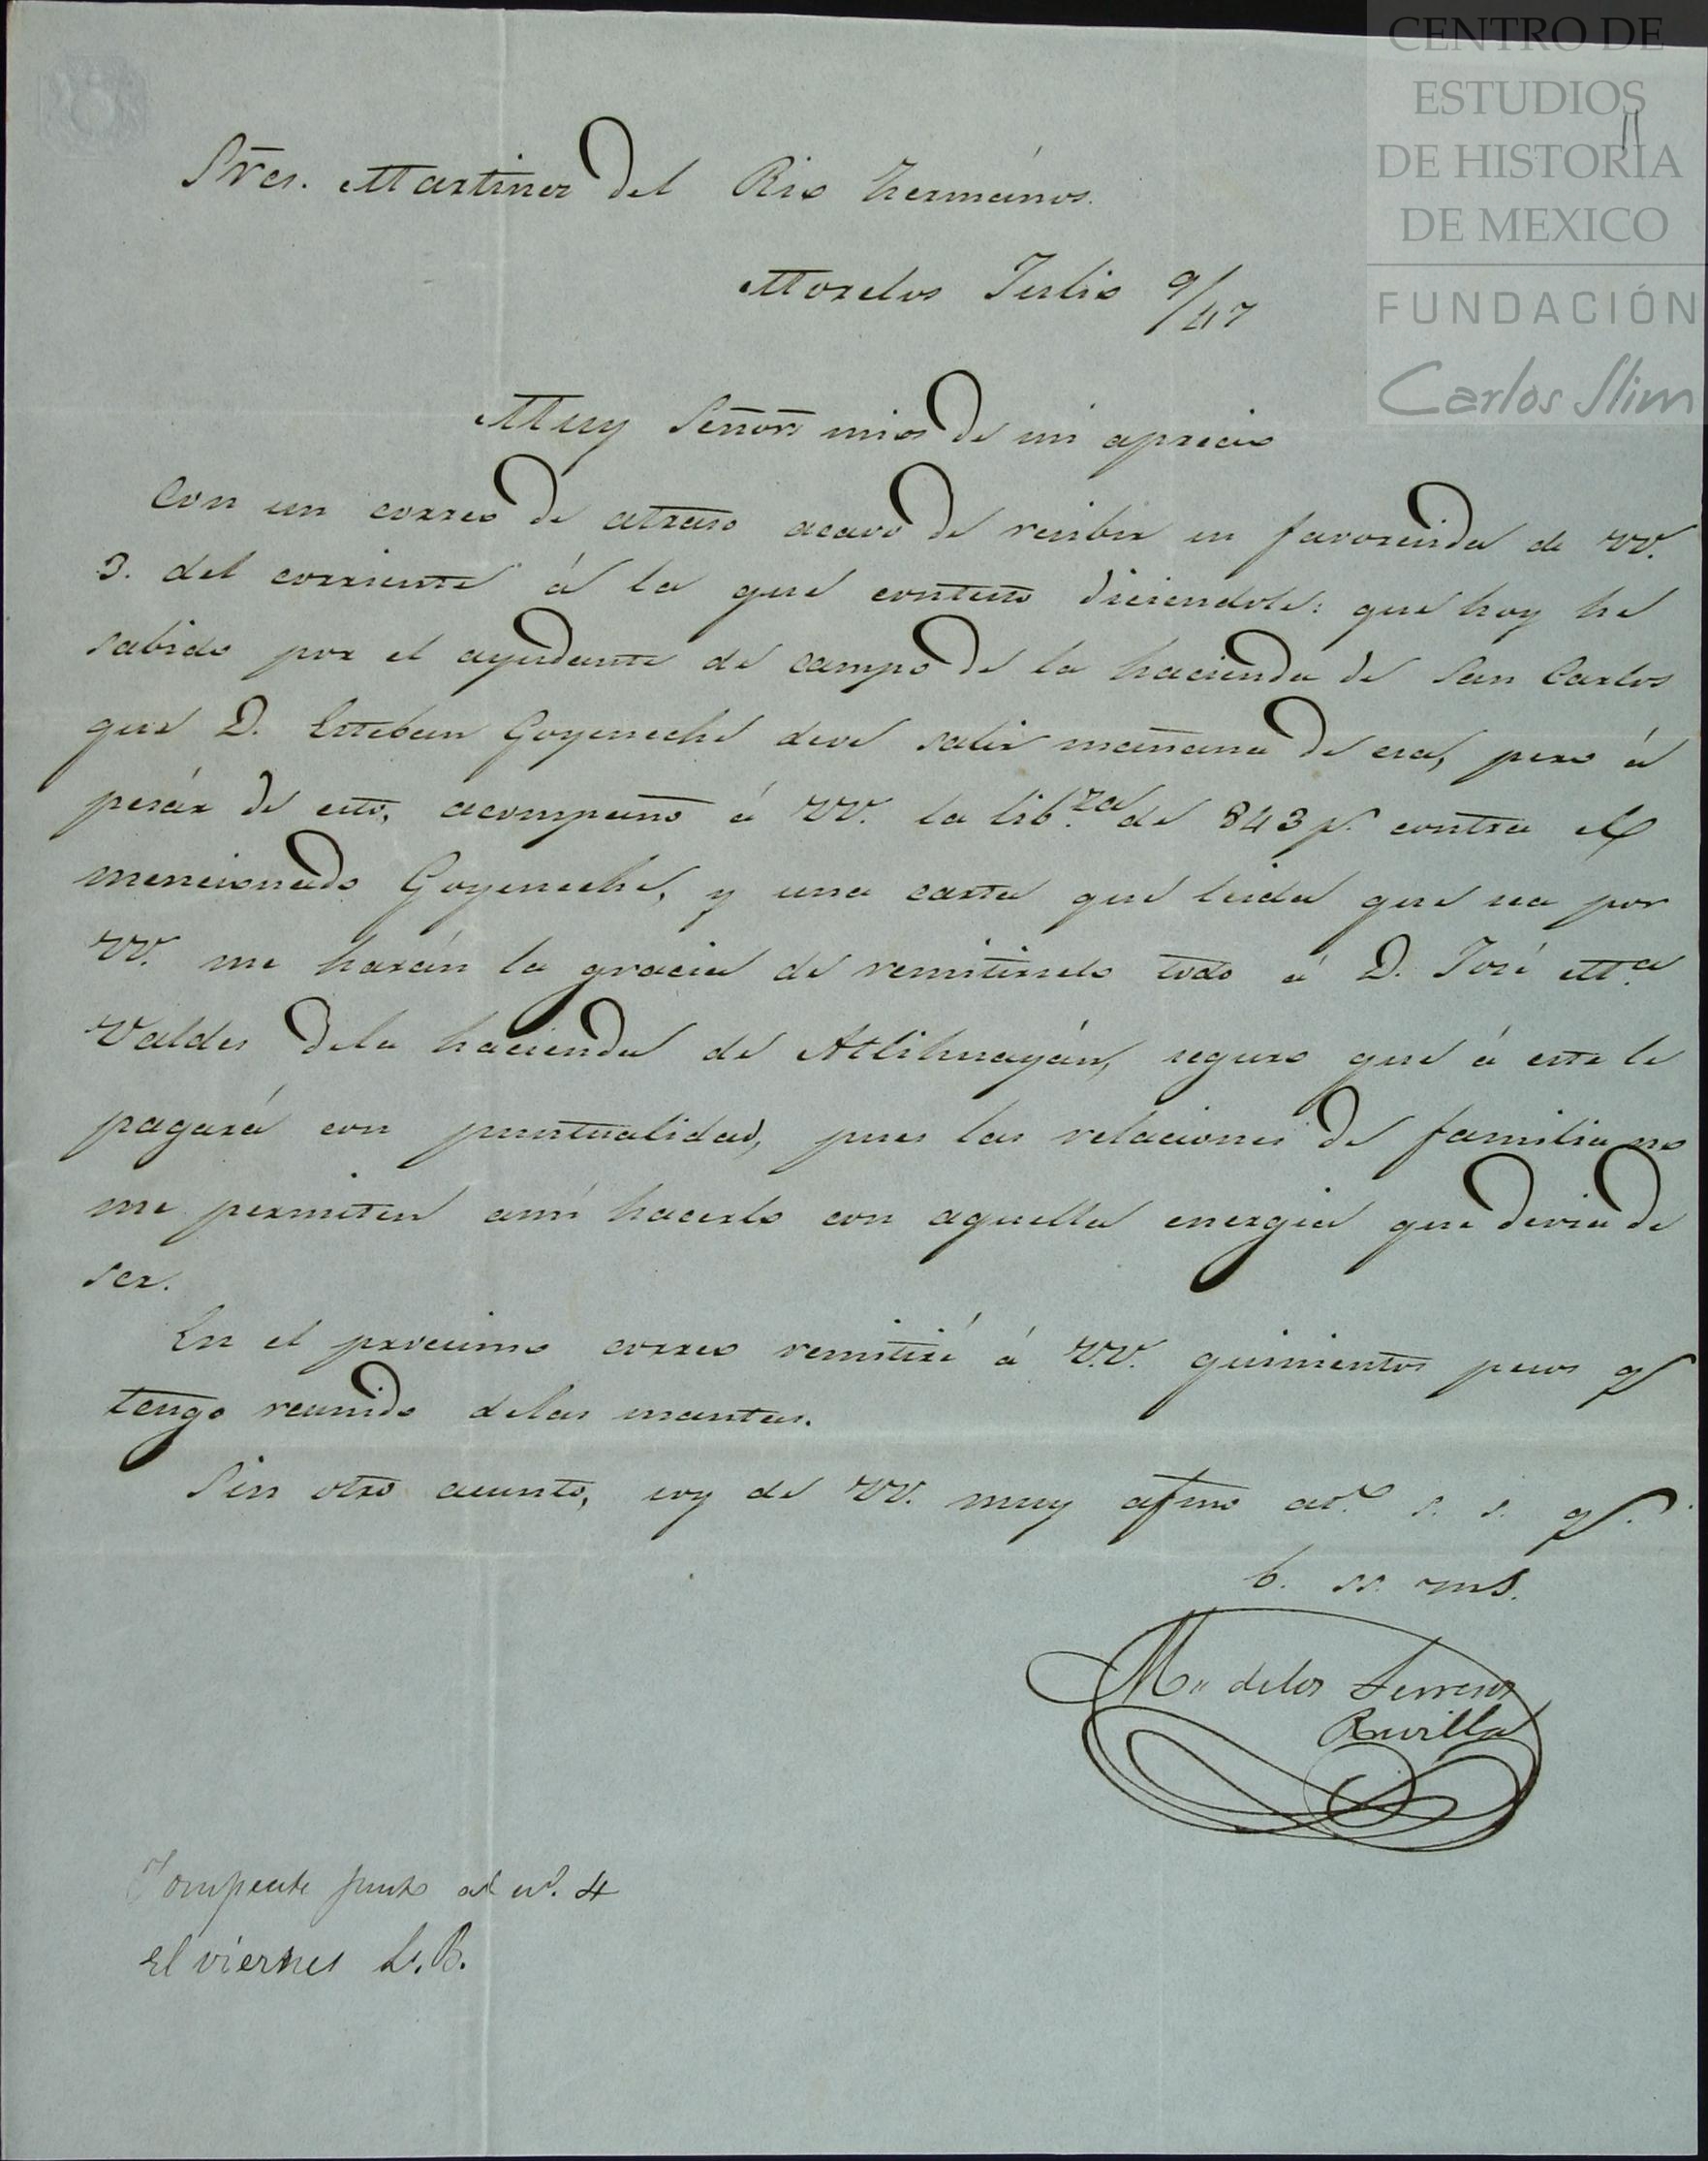 CENTRO DE
ESTUDIOS
DE HISTORIA
DE MEXICO
FUNDACIÓN
Carlos Slim
11
Sres. Martinez del Rio hermános.
Morelos Julio 9/47
Muy Señors mios de mi aprecio
Con un correo de atraso acavo de recibir su favorecida de VV.
3. del corriente á la que contesto diciendole: que hoy he
sabido por el ayudante de campo de la hacienda de San Carlos
que D. Esteban Goyeneche deve salir mañana de esa, pero á
pesár de esto, acompaño á VV. la lib.za de 843 p.s contra el
mencionado Goyeneche, y una carta que leida que sea por
VV. me harán la gracia de remitirselo todo á D. José M.a
Valdes dela hacienda de Atlihuayán, seguro que á este le
pagará con puntualidad, pues las relaciones de familia no
me permiten amí hacerlo con aquella energia que devia de
ser.
En el procsimo correo remitiré á V.V. quinientos pesos q
tengo reunido delas mantas.
Sin otro asunto, soy de VV. muy afmo at.o s. s. q.
b. ss. ms.
M. delos Terreros
Revilla
junto al n.o 4
el viernes L.B.